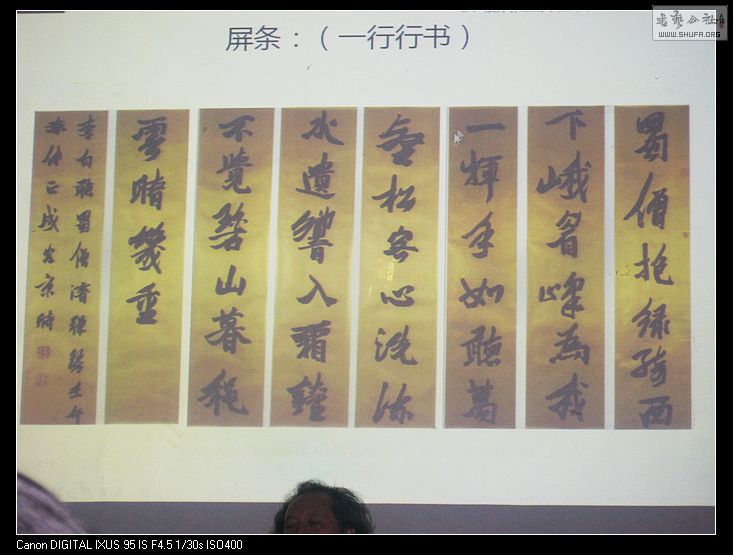 屏条：（一行行书）
蜀僧抱綠綺西
下峨眉峰為我
一揮手如聽萬
壑松客心洗流
水遺響入霜鐘
不覺碧山暮秋
雲暗幾重
李白聽蜀僧濬彈琴壬午
书艺公社
WWW.SHUFA.ORG
Canon DIGITAL IXUS 95 IS F4.5 1/30s ISO400